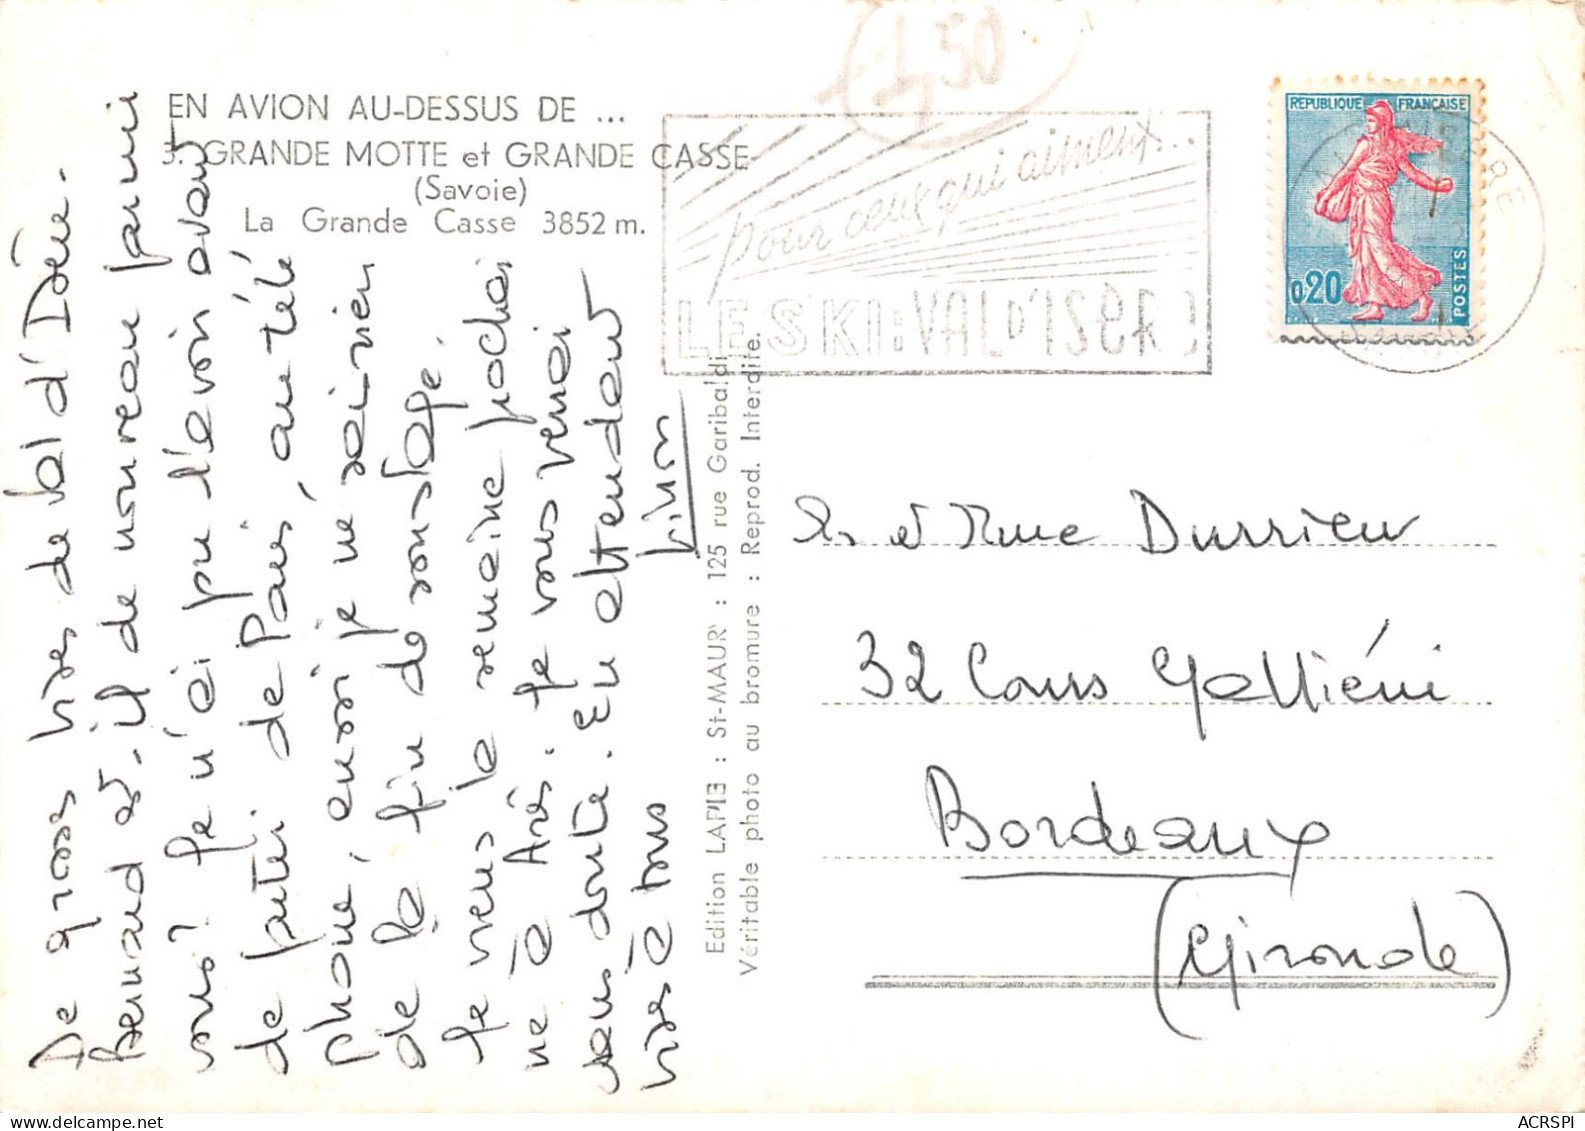 EN AVION AU-DESSUS DE ...
3. GRANDE MOTTE et GRANDE CASSE
(Savoie)
La Grande Casse 3852 m.
1,50
pour ceux qui aiment...
LE SKI : VAL D'ISERE
REPUBLIQUE FRANÇAISE
0,20
POSTES
De gross bises de Val d'Isère.
Bernard est-il de nouveau parmi
vous? Je n'ai pu l'avoir avant
de partir de Paris, au télé
phone, aussi je ne sais rien
de la fin de son stage.
Je viens la semaine prochai
ne à Arès. Je vous verrai
sans doute. En attendant
bises à tous
Edition LAPIE : St-MAUR : 125 rue Garibaldi
Véritable photo au bromure : Reprod. Interdite.
M. et Mme Durrieu
32 Cours Galliéni
Bordeaux
(Gironde)
ACRSPI